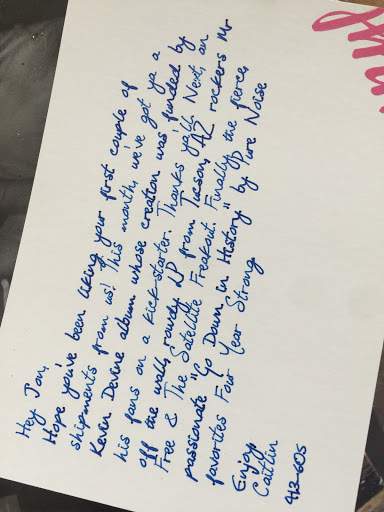 Hey Jon,
Hope you've been liking your first couple of
shipments from us! This month, we've got ya a
Kevin Devine album whose creation was funded by
his fans on a kickstarter. Thanks yall. Next, an
off the wall, rowdy LP from Tucson, AZ rockers Mr
Free & The Satellite Freakout. Finally, the fierce,
passionate "Go Down in History" by Pure Noise
favorites Four Year Strong.
Enjoy,
Caitlin
413-605